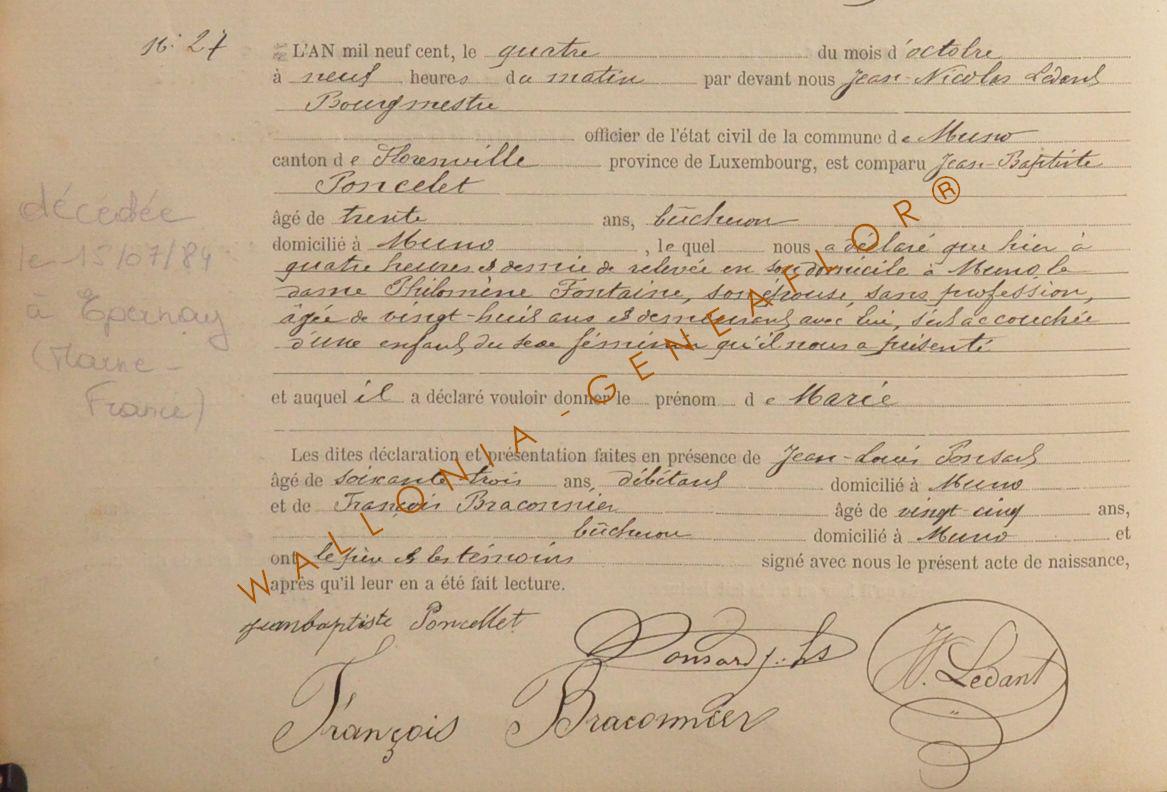 N° 27
L'AN mil neuf cent, le quatre du mois d'octobre
à neuf heures du matin par devant nous Jean-Nicolas Ledant
Bourgmestre
officier de l'état civil de la commune de Muno
canton de Florenville province de Luxembourg, est comparu Jean-Baptiste
Poncelet
âgé de trente ans, bûcheron
domicilié à Muno, lequel nous a déclaré que hier à
quatre heures et demie de relevée en son domicile à Muno, la
dame Philomène Fontaine, son épouse, sans profession,
âgée de vingt-huit ans et demeurant avec lui, s'est accouchée
d'une enfant du sexe féminin qu'il nous a présenté
et auquel il a déclaré vouloir donner le prénom de Marie
Les dites déclaration et présentation faites en présence de Jean-Louis Ponsart
âgé de soixante-trois ans, débitant domicilié à Muno
et de François Braconnier âgé de vingt cinq ans,
bûcheron domicilié à Muno et
ont le père et les témoins signé avec nous le présent acte de naissance,
après qu'il leur en a été fait lecture.
jeanbaptiste Poncellet
Ponsard j.. ls
N. Ledant
François Braconnier
décédée
le 15/07/84
à Epernay
(Marne -
France)
WALLONIA - GENEAFLOR®